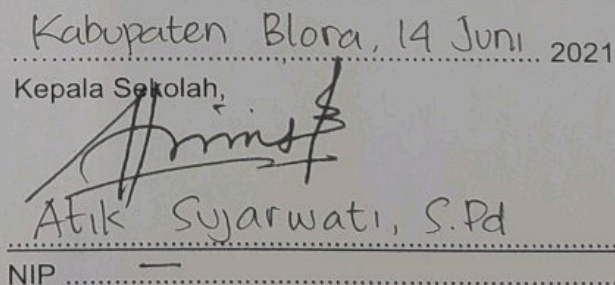 Kabupaten Blora, 14 Juni 2021
Kepala Sekolah,
Atik Sujarwati, S.Pd
NIP —